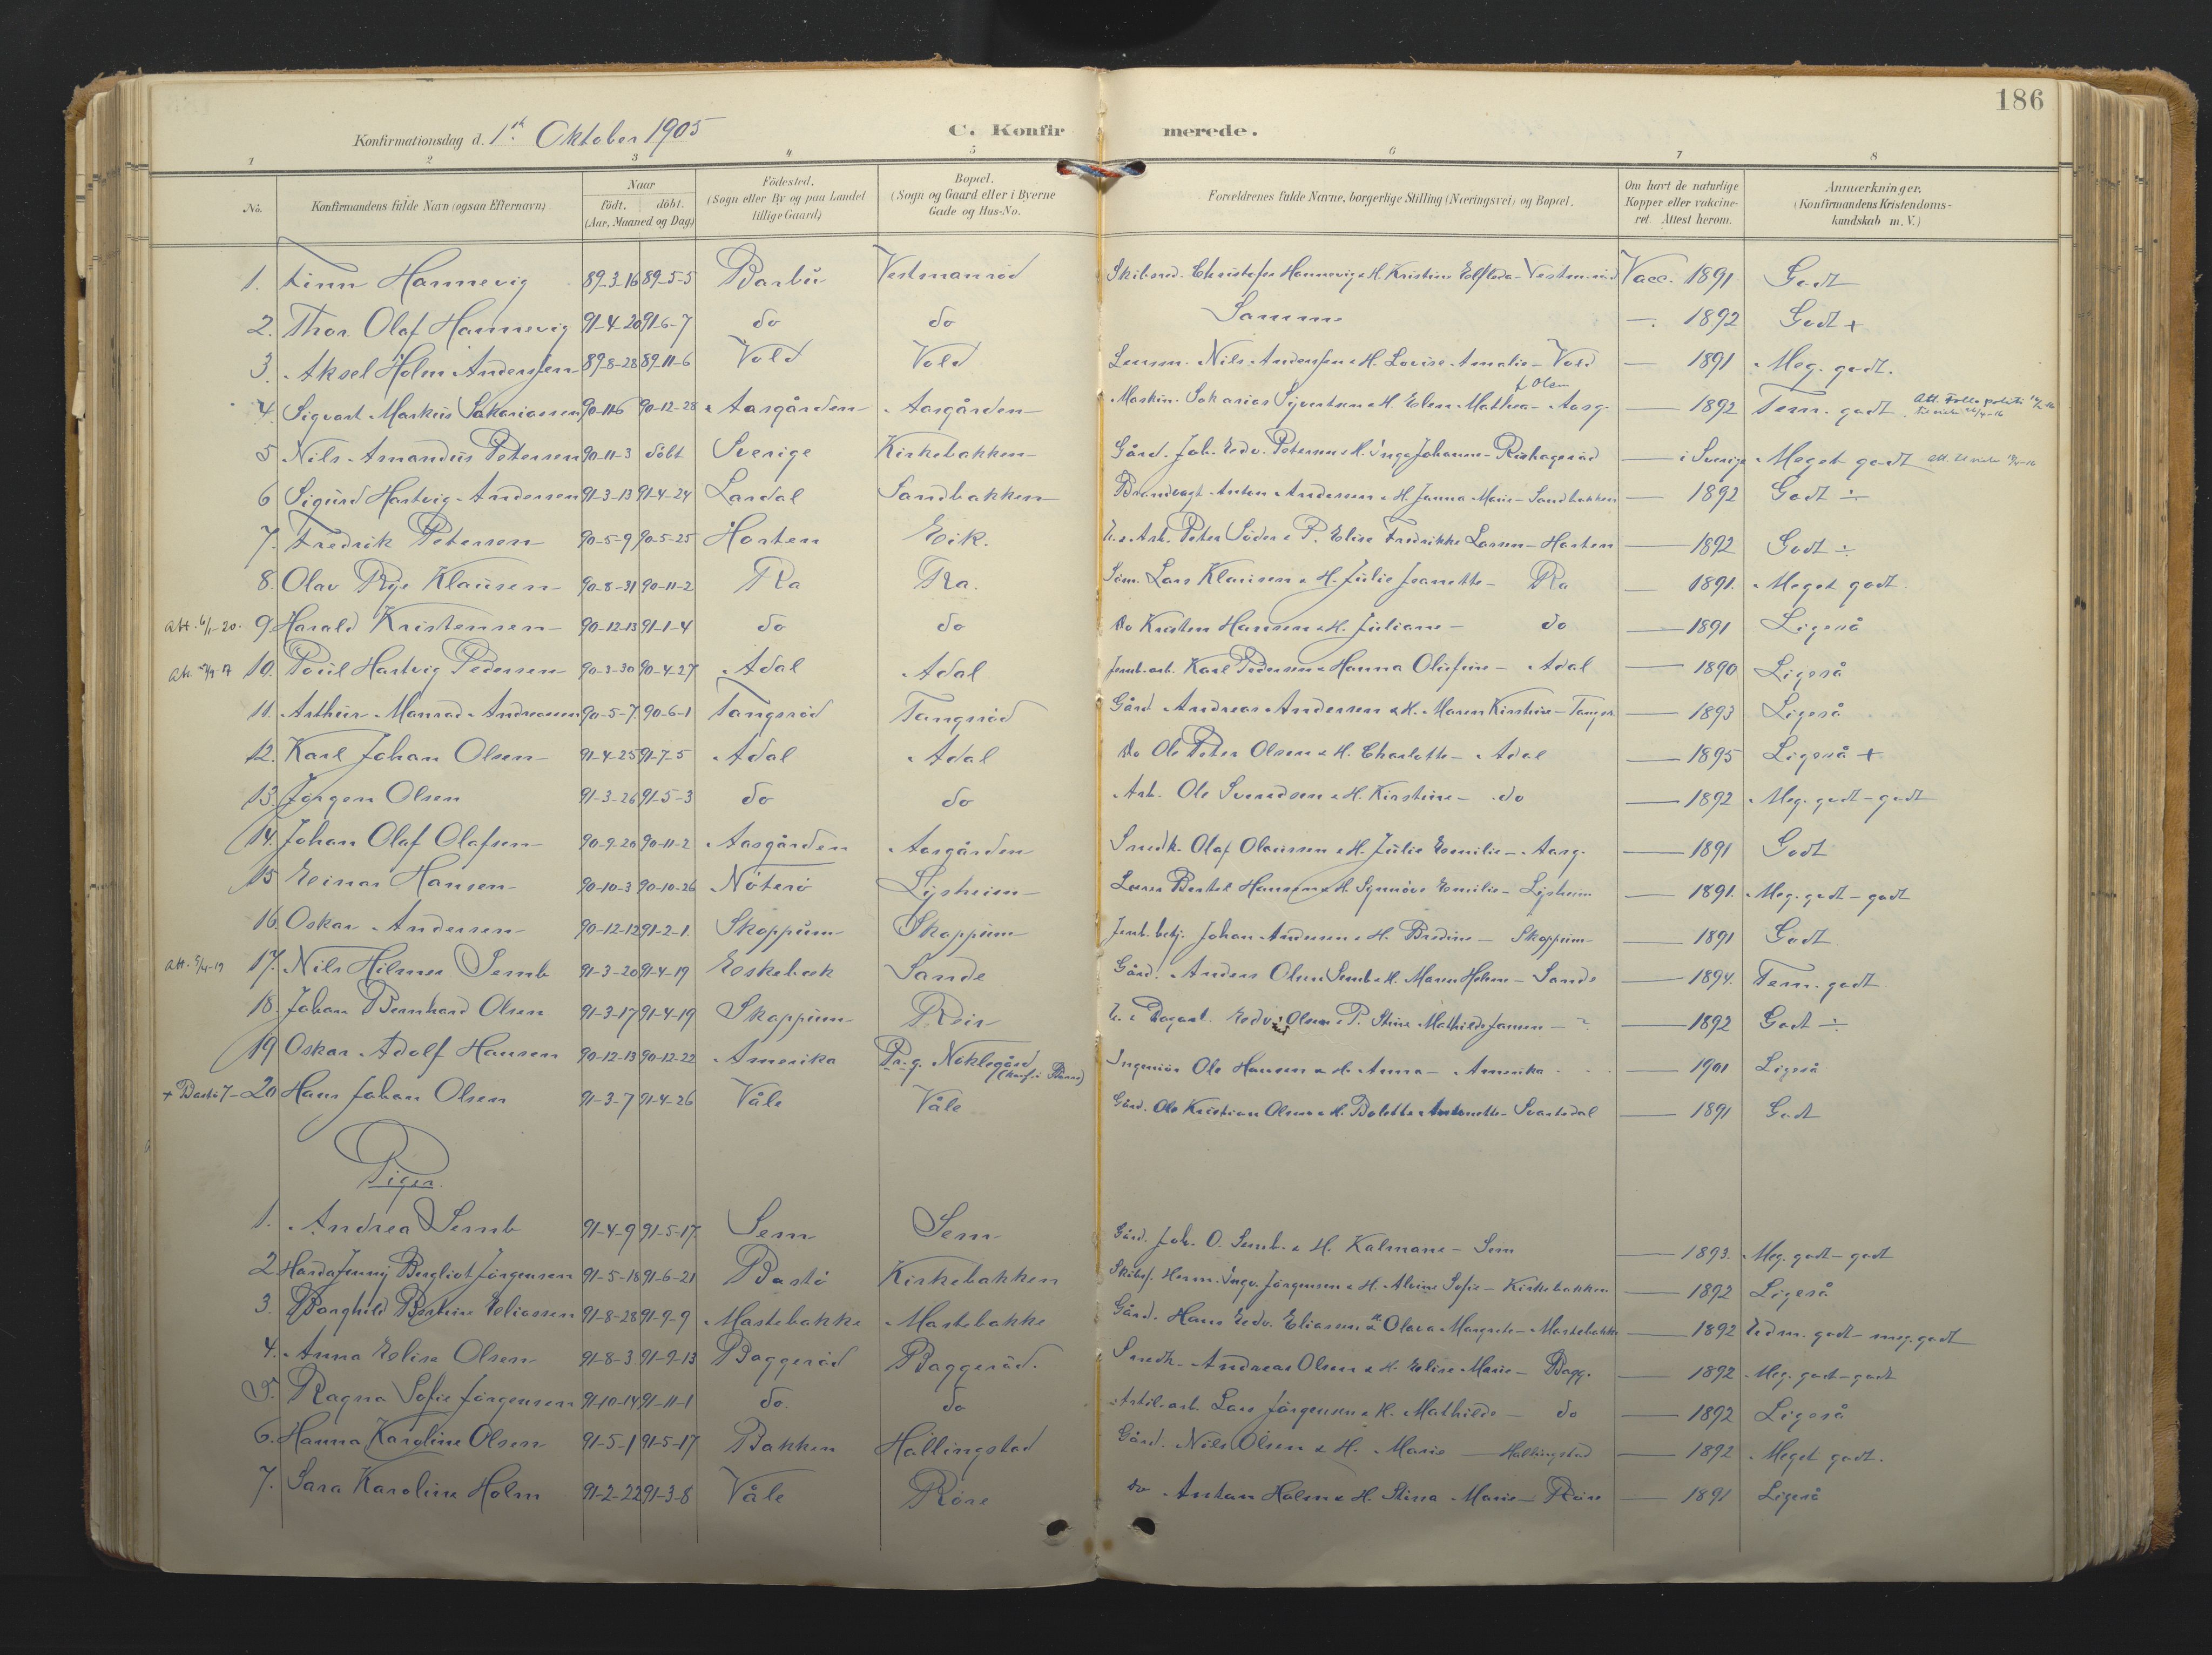 186
Konfirmationsdag d. 1ste Oktober 1905
C. Konfirmerede.
1 2 3 4 5 6 7 8
No. Konfirmandens fulde Navn (ogsaa Efternavn) Naar födt. döbt. (Aar, Maaned og Dag) Födested. (Sogn eller By og paa Landet tillige Gaard) Bopæl. (Sogn og Gaard eller i Byerne Gade og Hus-No. Forældrenes fulde Navne, borgerlige Stilling (Næringsvei) og Bopæl. Om havt de naturlige Kopper eller vakcineret. Attest herom. Anmærkninger. (Konfirmandens Kristendomskundskab m. V.)
1. Finn Hannevig 89-3-16 89-5-5 Barbu Vestmanröd Skibsred. Christofer Hannevig & H. Kristine Vacc. 1891 Godt
2. Thor Olaf Hannevig 91-4-20 91-6-7 do do Samme — 1892 Godt +
3. Aksel Holm Anderssen 89-8-28 89-11-6 Vold Vold Nils Anderssen & H. Lovise Amalie - Vold — 1891 Meg. godt.
4. Sigvart Markus Sakariassen 90-12-28 Aasgården Aasgården Maskin. Sakarias Sigvartsen & H. Elen Mathea f. Olsen - Aasg. — 1892 Tem. godt
5 Nils Amandus Petersen 90-11-3 döbt Sverige Kirkebakken Gård. Joh. Edv. Petersen & H. Inga Johanne - — i Sverige Meget godt
6 Sigurd Hartvig Andersen 91-3-13 91-4-24 Lardal Sandbakken Brandvagt Anton Andersen & H. Janna Marie - Sandbakken — 1892 Godt ÷
7. Fredrik Petersen 90-5-9 90-5-25 Horten Eik. U. e. Arb. Peter Söder & P. Elise Fredrikke Larsen - Horten — 1892 Godt ÷
8. Olav Rye Klausen 90-8-31 90-11-2 Ra Ra. Söm. Lars Klausen & H. Julie Jeanette - Ra — 1891. Meget godt
Att. 6/1-20. 9 Harald Kristensen 90-12-13 91-1-4 do do do Kristen Hansen & H. Juliane - do — 1891 Ligeså
10. Poul Hartvig Pedersen 90-3-30 90-4-27 Adal Adal Jernb.arb. Karl Pedersen & Hanna Olufine - Adal — 1890 Ligeså
11. Arthur Monrad Andreassen 90-5-7 90-6-1 Tangsröd Tangsröd Gård Andreas Andersen & H. Maren Kirstine - Tangsr. — 1893 Ligeså
12. Karl Johan Olsen 91-4-25 91-7-5 Adal Adal do Ole Peter Olsen & H. Charlotte - Adal — 1895 Ligeså +
13. Jörgen Olsen 91-3-26 91-5-3 do do Arb. Ole Svendsen & H. Kirstine - do — 1892 Meg. godt - godt
14. Johan Olaf Olafsen 90-9-20 90-11-2 Aasgården Aasgården Snedk. Olaf Olaussen & H. Julie Emilie - Aasg. — 1891 Godt
15 Einar Hansen 90-10-3 90-10-26 Nöterö Lysheim Bertel Hansen & H. Synnöve Emilie - Lysheim — 1891. Meg. godt - godt
16. Oskar Andersen 90-12-12 91-2-1. Skoppum Skoppum Jernb.betj. Johan Andersen & H. Bredine - Skoppum — 1891 Godt
17. Nils Hilmer Semb 91-3-20 91-4-19 Eskebæk Sande Gård. Anders Olsen Semb & H. Maren Helene - Sande — 1894. Tem. godt
18. Johan Bernhard Olsen 91-3-17 91-4-19 Skoppum Reir U. e. Edv. Olsen & P. Stine Mathilde Jansen - — 1892 Godt ÷
19 Oskar Adolf Hansen 90-12-13 90-12-22 Amerika Pr.g. Nöklegård Ingeniör Ole Hansen & H. Anna - Amerika — 1901 Ligeså
20 Hans Johan Olsen 91-3-7 91-4-26 Våle Våle Gård. Ole Kristian Olsen & H. Bolette Antonette - Svartedal — 1891 Godt
Piger.
1. Andrea Semb 91-4-9 91-5-17. Sem Sem Gård. Joh. O. Semb & H. Kalmane - Sem — 1893. Meg. godt - godt
2 Jenny Bergliot Jörgensen 91-5-18 91-6-21 Bastö Kirkebakken Skibsf. Herm. Ingv. Jörgensen & H. Alvine Sofie - Kirkebakken — 1892 Ligeså
3. Borghild Bertine Eliassen 91-8-28 91-9-9 Mastebakke Mastebakke Gård. Hans Edv. Eliassen & H. Olava Margrete - Mastebakke — 1892 Udm. godt - meg. godt
4. Anna Elise Olsen 91-8-3 91-9-13 Baggeröd Baggeröd. Snedk. Andreas Olsen & H. Elise Marie - Bagg. — 1892 Meg. godt - godt
5. Ragna Sofie Jörgensen 91-10-14 91-11-1 do. do Artil.arb. Lars Jörgensen & H. Mathilde - do — 1892 Ligeså
6. Hanna Karoline Olsen 91-5-1 91-5-17 Bakken Hallingstad Gård. Nils Olsen & H. Marie - Hallingstad — 1892 Meget godt.
7. Sara Karoline Holm 91-2-22 91-3-8 Våle Röre do Anton Holm & H. Stina Marie - Röre — 1891 Ligeså